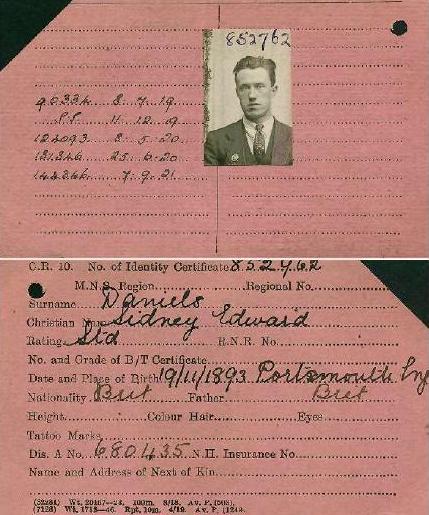 852762
90334 8.7.19
PP 11.12.19
124093 3.5.20
131346 25.6.20
148366 7.9.21
C.R. 10. No. of Identity Certificate 852762
M.N.S. Region Regional No.
Surname Daniels
Christian Name Sidney Edward
Rating Std R.N.R. No.
No. and Grade of B/T Certificate
Date and Place of Birth 19/11/1893 Portsmouth Eng
Nationality Brit Father Brit
Height Colour Hair Eyes
Tattoo Marks
Dis. A No. 680435 N.H. Insurance No.
Name and Address of Next of Kin
100m. 8/18. Av. P.
(7126) Wt. 1713—46. Rpt. 10m. 4/19. Av. P. (1249.